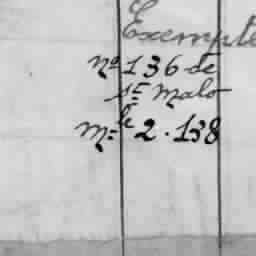 Exempte
nº 136 de
St Malo
Mle 2.138